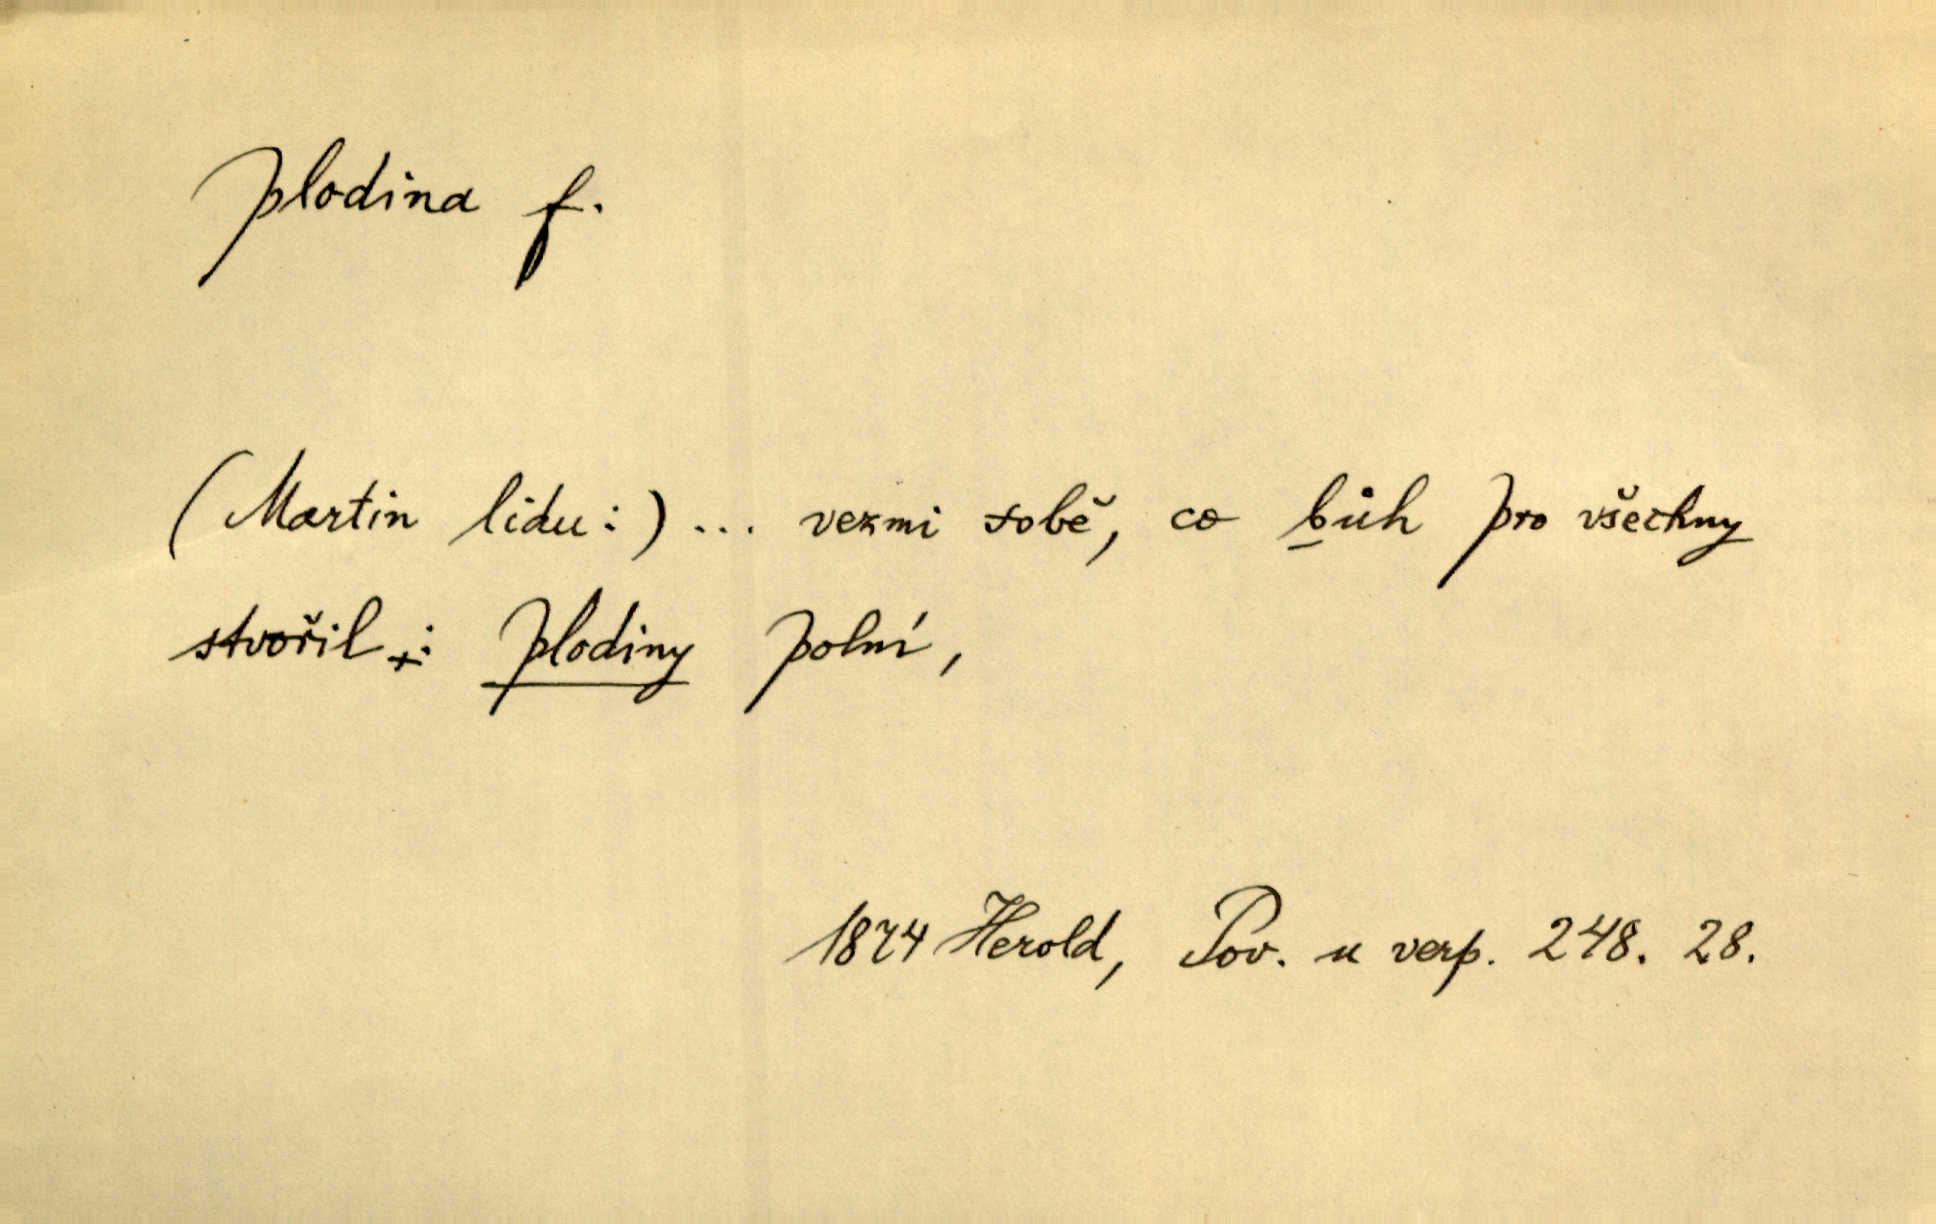 plodina f.
(Martin lidu:) ... vezmi sobě, co bůh pro všechny
stvořil +: plodiny polní,
1874 Herold, Pov. u verp. 248. 28.